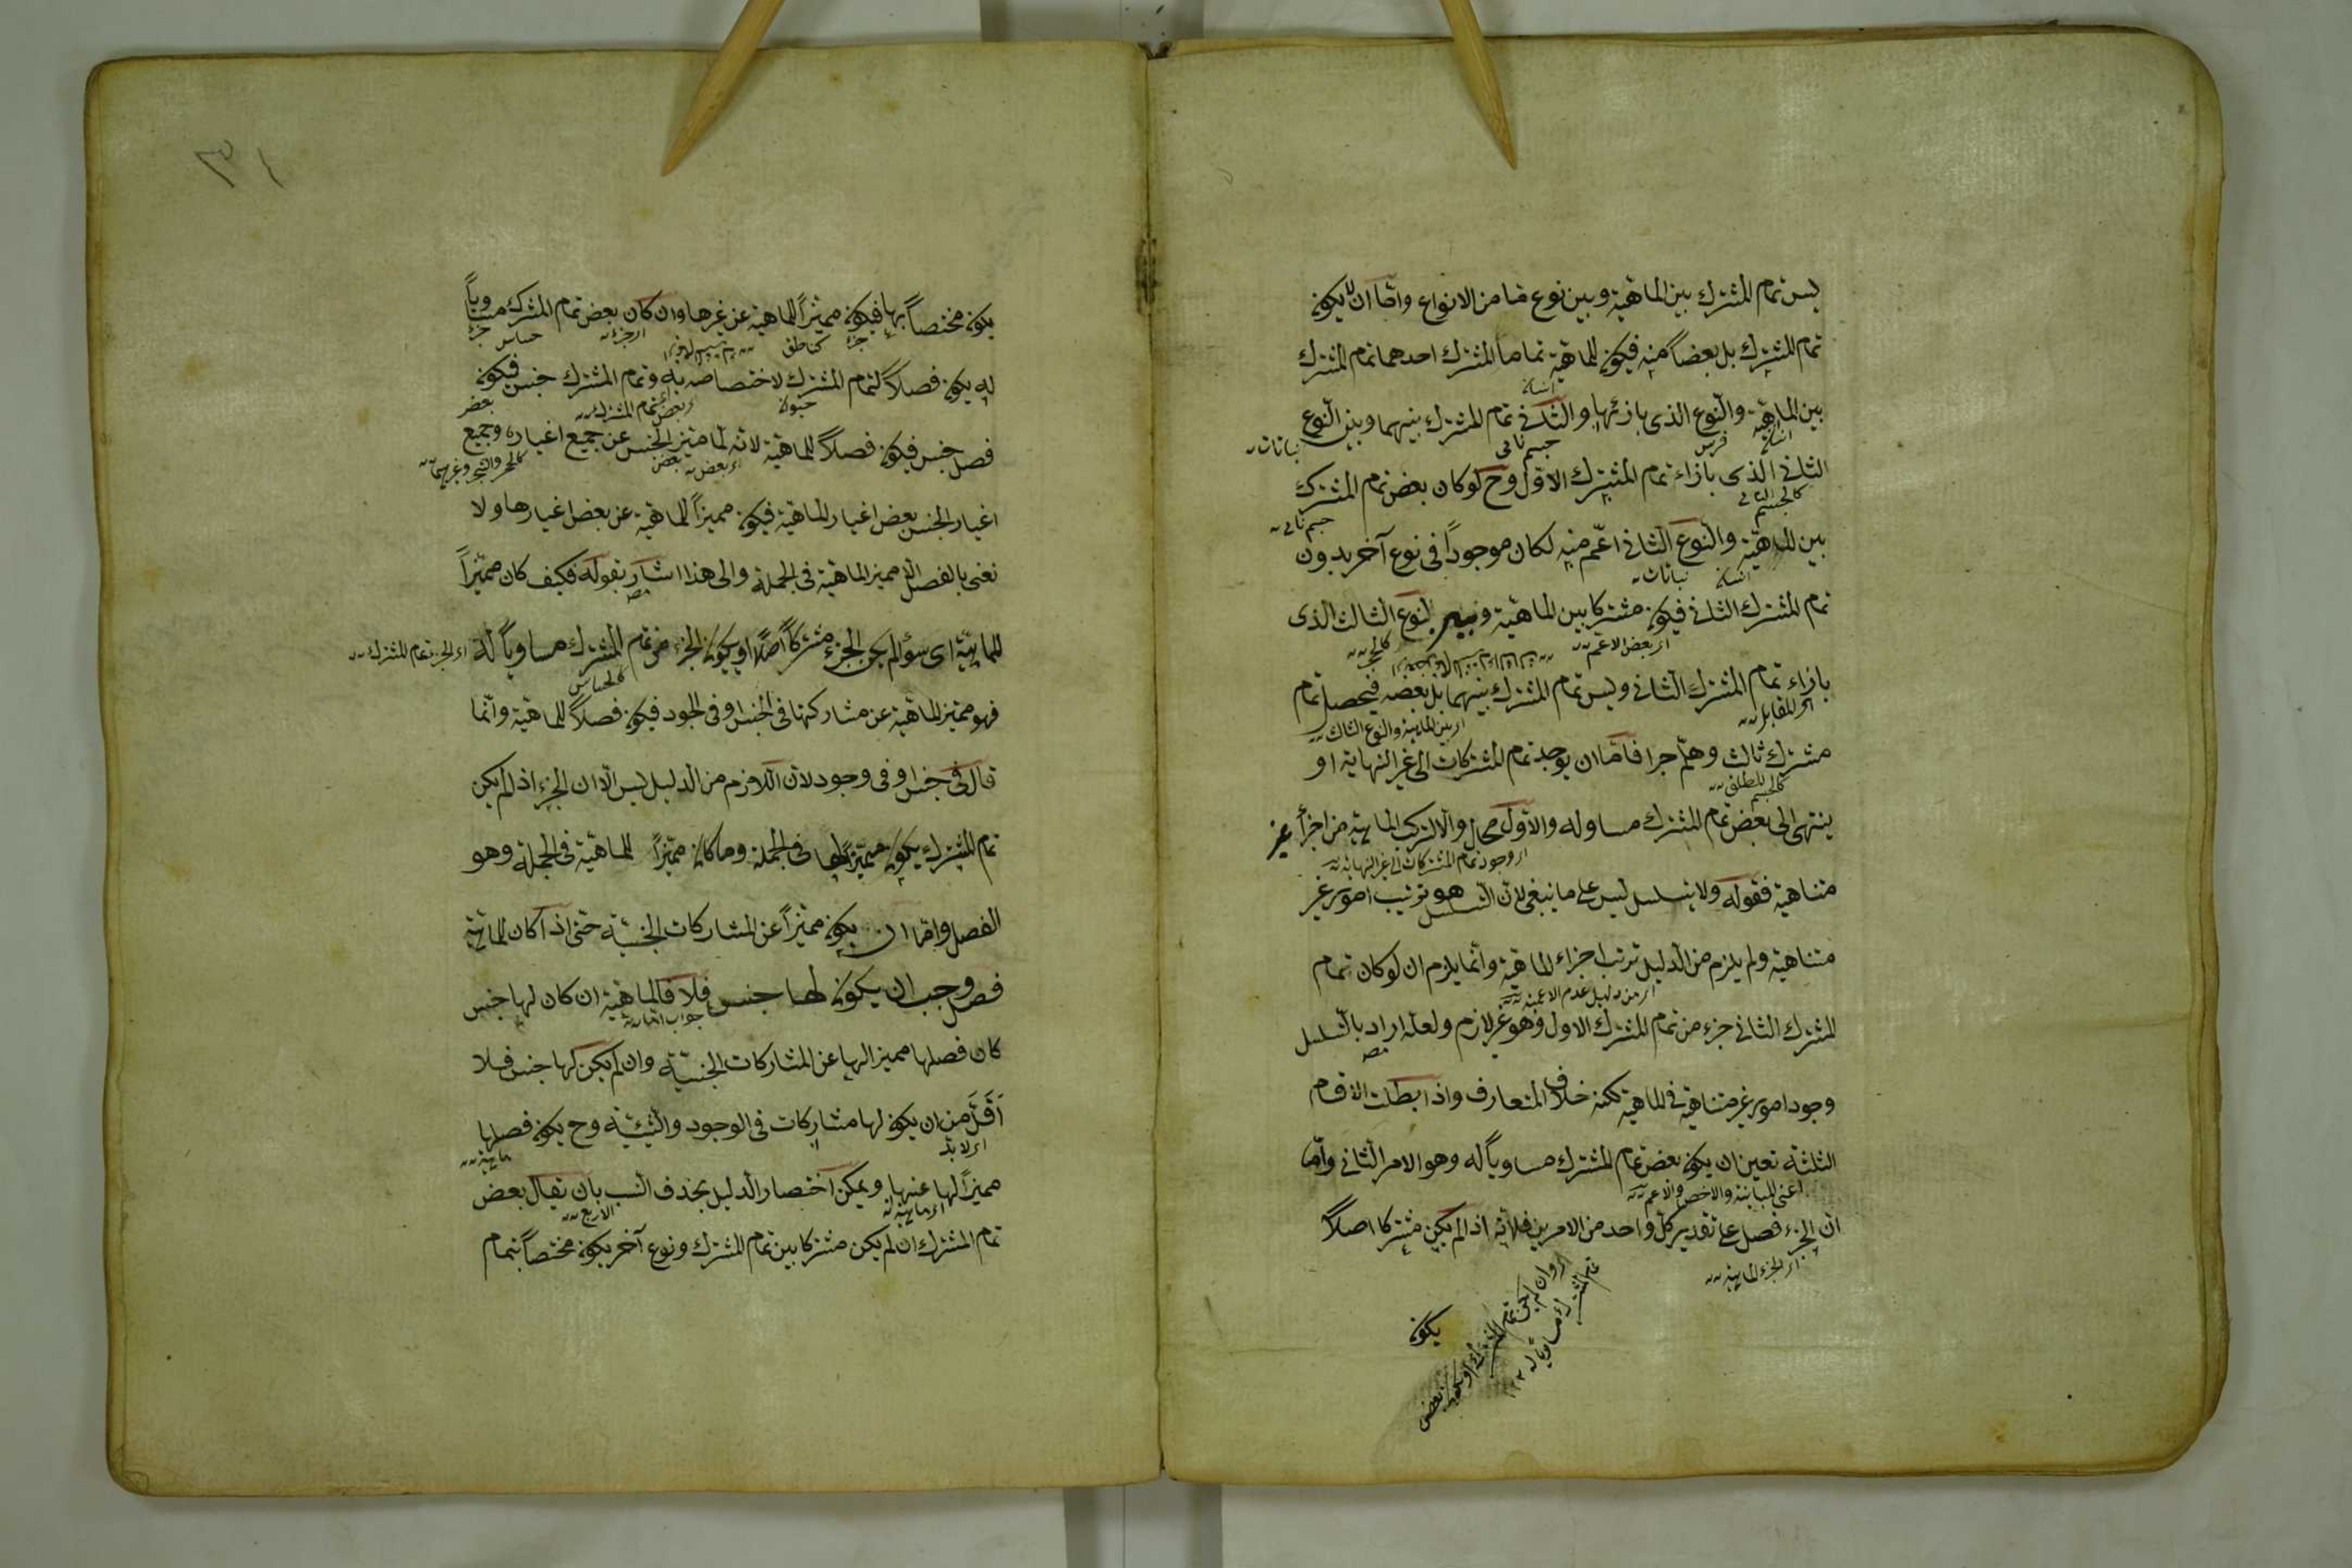 ليس تمام المشترك بين الماهية وبين نوع ما من الانواع واما ان لا يكون
تمام المشترك بل بعضا منه فيكون للماهية تماما المشترك احدهما تمام المشترك
انسان
بين الماهية والنوع الذى بازائها والثانى تمام المشترك بينهما وبين النوع
انسان فرس جسم نامى نباتات
الثانى الذى بازاء تمام المشترك الاول وح لوكان بعض تمام المشترك
كالجسم النامى جسم نامى
بين الماهية والنوع الثانى اعم منه لكان موجودا فى نوع آخر بدون
انسان نباتات
تمام المشترك الثانى فيكون مشتركا بين الماهية وبين النوع الثالث الذى
اى بعض الاعم كالحجر
بازاء تمام المشترك الثانى وليس تمام المشترك بينهما بل بعضه فيحصل تمام
اى المقابل اى بين الماهية والنوع الثالث
مشترك ثالث وهلم جرا فاما ان يوجد تمام المشتركات الى غير النهاية او
كالجسم المطلق
ينتهى الى بعض تمام المشترك مساو له والاول محال والا لتركب الماهية من اجزأ غير
اى وجود تمام المشتركات الى غير النهاية
متناهية فقوله ولا يتسلسل ليس على ما ينبغى لان التسلسل هو ترتيب امور غير
متناهية ولم يلزم من الدليل ترتب اجزاء الماهية وانما يلزم ان لوكان تمام
اى من دليل عدم الاعمية
المشترك الثانى جزء من تمام المشترك الاول وهو غير لازم ولعله اراد بالتسلسل
مص
وجود امور غير متناهية فى الماهية لكنه خلاف المتعارف واذا بطلت الاقسام
الثلثة تعين ان يكون بعض تمام المشترك مساويا له وهو الامر الثانى واما
اعنى المباينة والاخص والاعم
ان الجزء فصل على تقدير كل واحد من الامرين فلانه اذا لم يكن مشتركا اصلا
اى الجزء الماهية
يكون
٣١
يكون مختصا بها فيكون مميزا للماهية عن غيرها وان كان بعض تمام المشترك مساويا
جزء كناطق اى جزء حساس جزء
له يكون فصلا لتمام المشترك لاختصاصه به وتمام المشترك جنس فيكون
حيوان اى بعض تمام المشترك بعض
فصل جنس فيكون فصلا للماهية لانه لما ميز الجنس عن جميع اغياره وجميع
اى بعض بعض كالحجر والشجر وغيرهما
اغيار الجنس بعض اغيار الماهية فيكون مميزا للماهية عن بعض اغيارها ولا
نعنى بالفصل الا مميز الماهية فى الجملة والى هذا اشار بقوله فكيف كان مميزا
مص
للماهية اى سواء لم يكن الجزء مشتركا اصلا او يكون الجزء من تمام المشترك مساويا له
كالحساس
فهو مميز للماهية عن مشاركتها فى الجنس او فى الوجود فيكون فصلا للماهية وانما
قال فى جنس او فى وجود لان اللازم من الدليل ليس الا ان الجزء اذا لم يكن
تمام المشترك يكون مميزا لها فى الجملة وما كان مميزا للماهية فى الجملة وهو
الفصل واما ان يكون مميزا عن المشاركات الجنسية حتى اذا كان للماهية
فصل وجب ان يكون لها جنس فلا فالماهية ان كان لها جنس
جواب اما
كان فصلها مميزا لها عن المشاركات الجنسية وان لم يكن لها جنس فلا
اقل من ان يكون لها مشاركات فى الوجود والشيئية وح يكون فصلها
اى لا بد ماهية
مميزا لها عنها ويمكن اختصار الدليل بحذف النسب بان يقال بعض
الاربع
تمام المشترك ان لم يكن مشتركا بين تمام المشترك ونوع آخر يكون مختصا بتمام